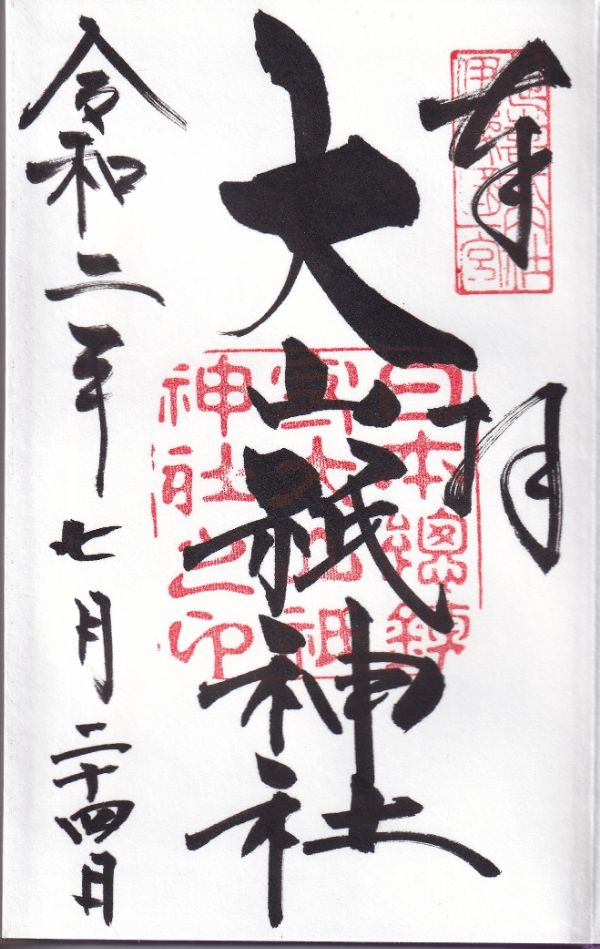 奉拝
大山祇神社
日本總鎮
神社之印
令和二年七月二十四日